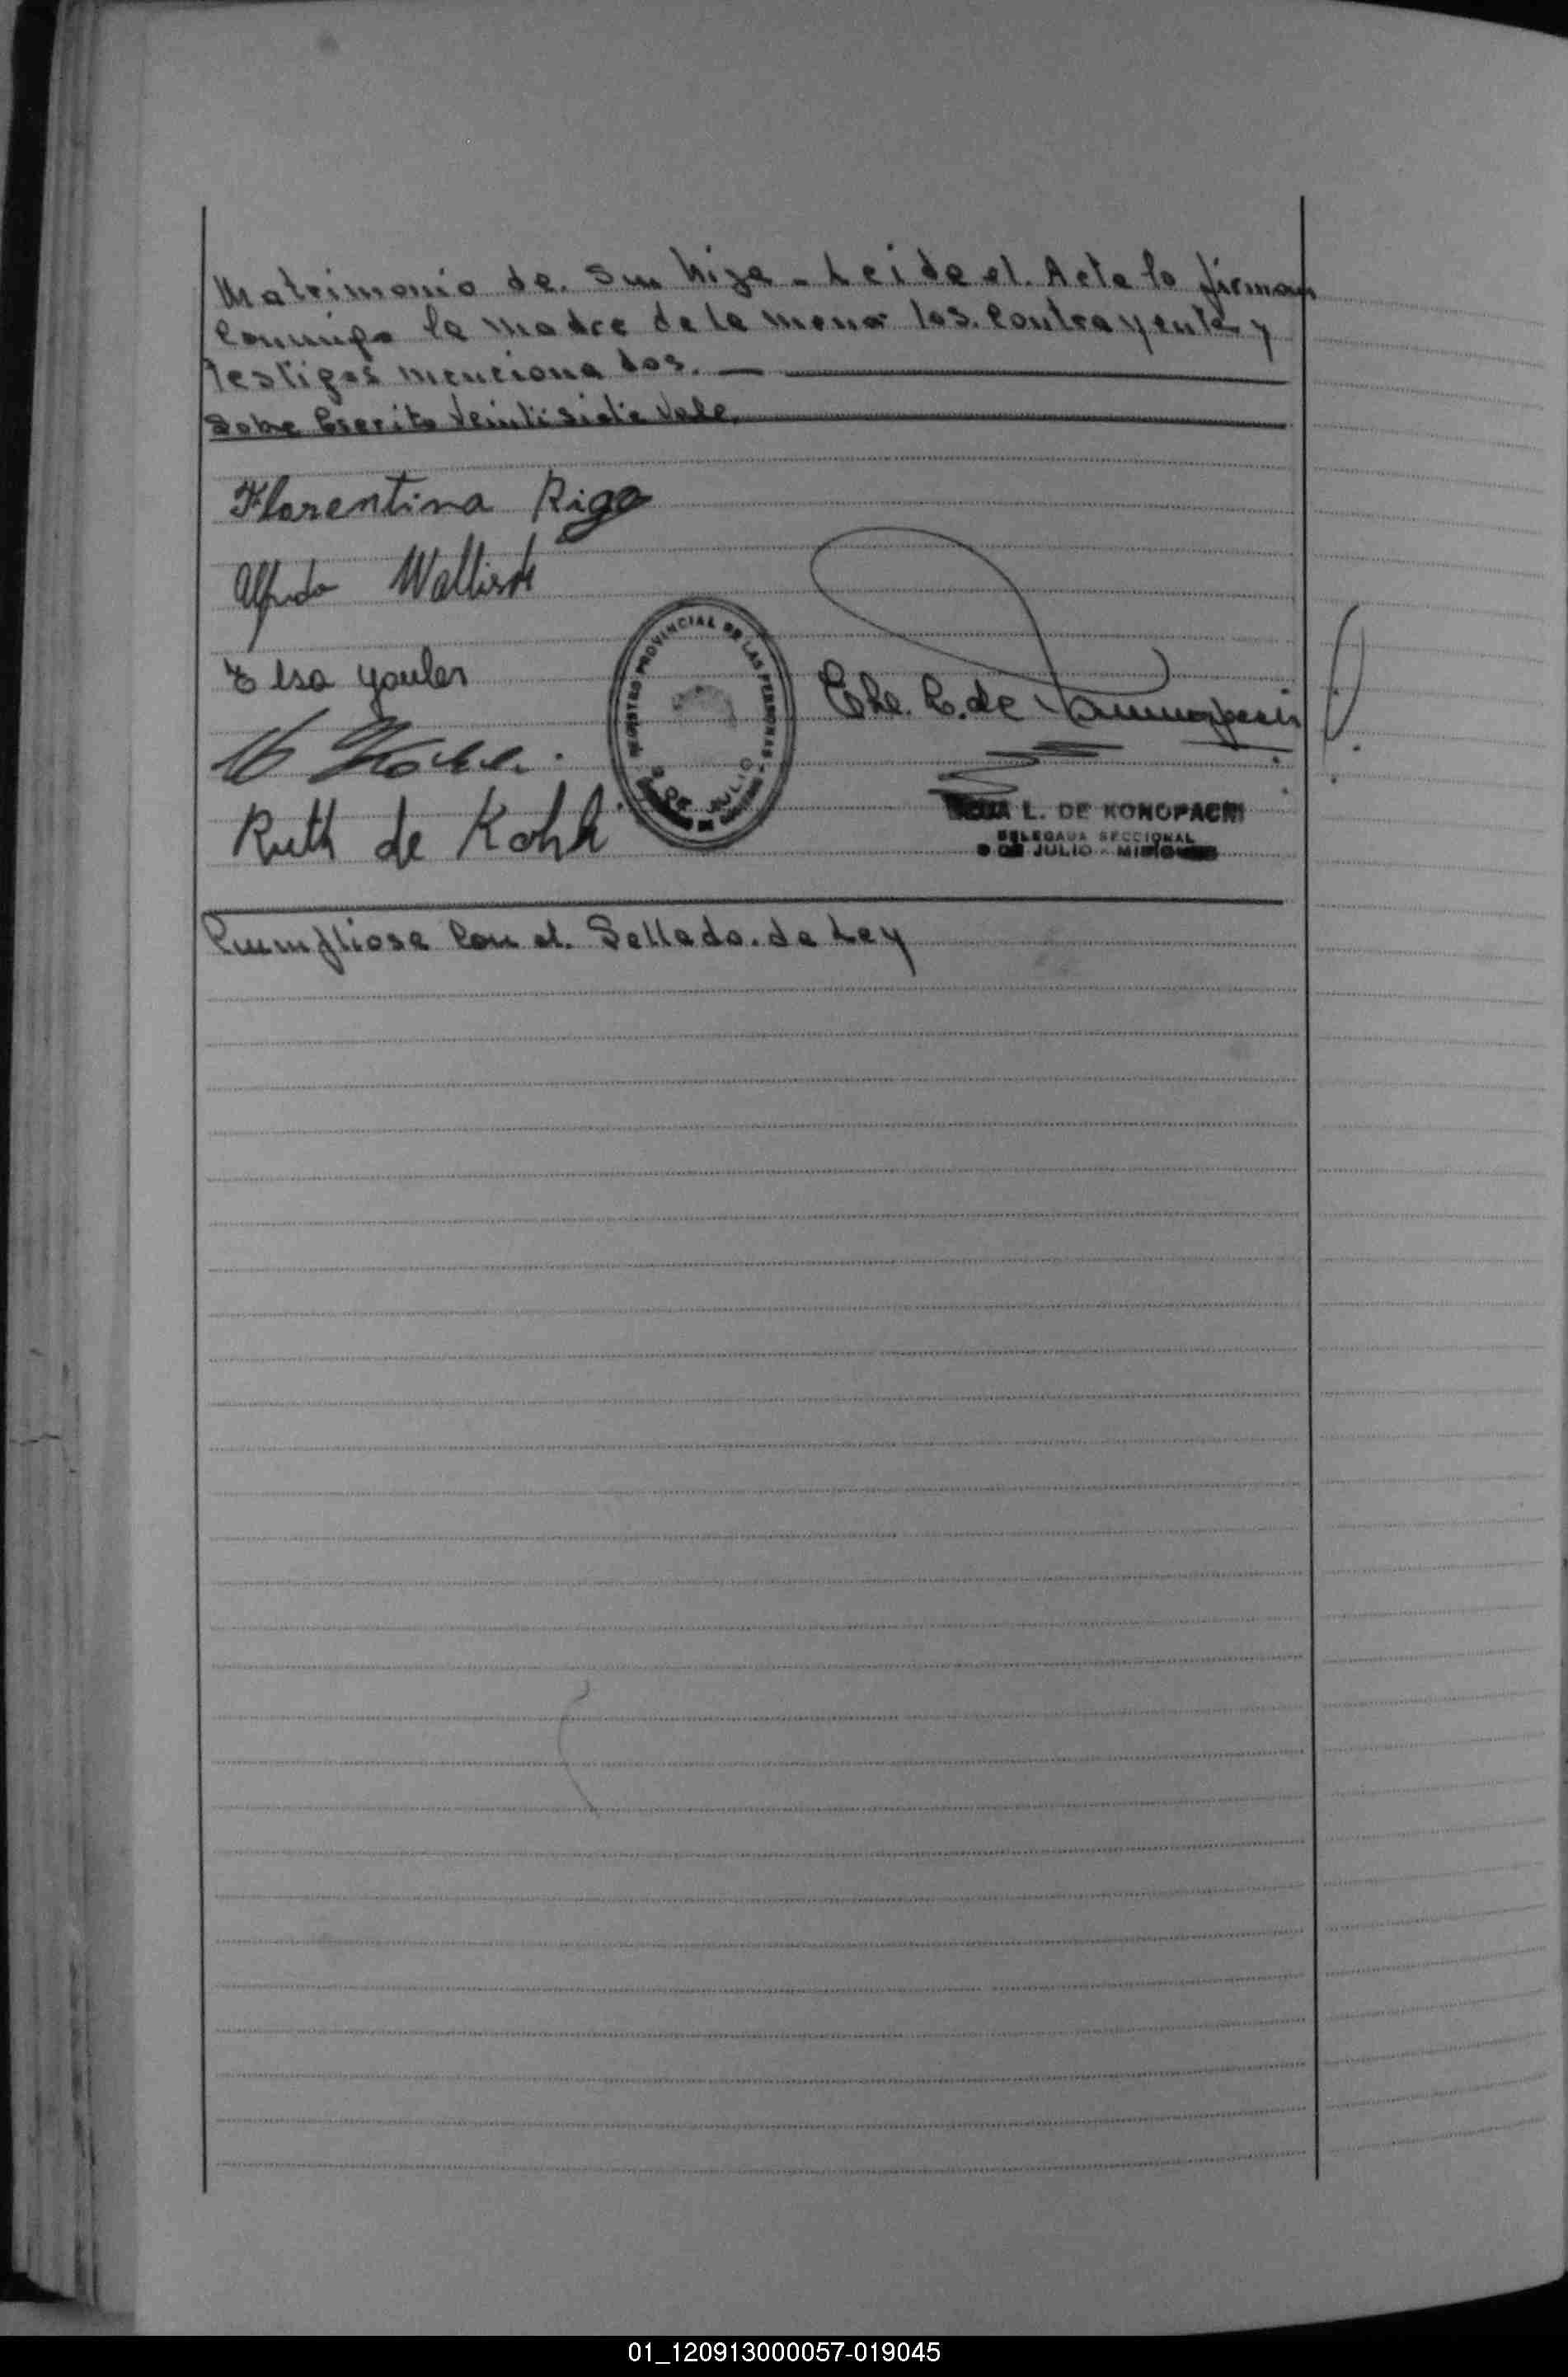 Matrimonio de. Su hija - Leida el. Acta la firman
Conmigo la madre de la menor los. Contrayentes y
Testigos mencionados. —
Sobre Escrito Veintisiete Vale.
Florentina Rigo
Alfredo
Elsa
REGISTRO PROVINCIAL DE LAS PERSONAS
9 DE JULIO
Ruth de Kohh
L. DE KONOPACKI
DELEGADA SECCIONAL
9 DE JULIO - MISIONES
Cumpliose Con el. Sellado. de Ley
01_120913000057-019045